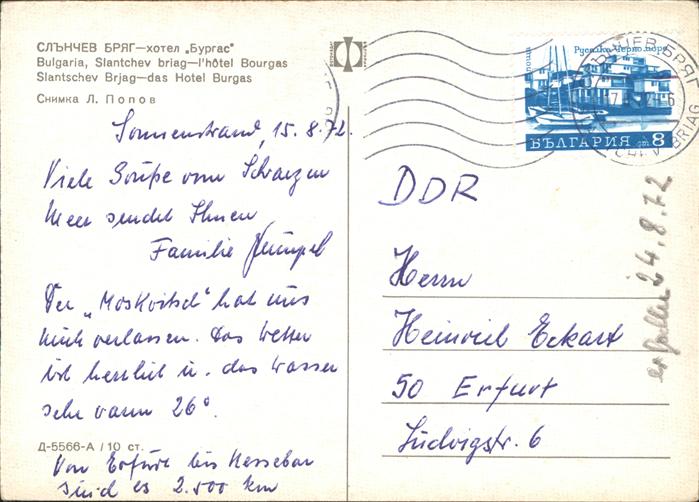 СЛЪНЧЕВ БРЯГ—хотел „Бургас"
Bulgaria, Slantchev briag—l'hôtel Bourgas
Slantschev Brjag—das Hotel Burgas
Снимка Л. Попов
Sonnenstrand, 15.8.72.
Viele Grüße vom Schwarzen
Meer sendet Ihnen
Familie
Der „Moskvitsch" hat uns
nicht verlassen. Das Wetter
ist herrlich u. das Wasser
sehr warm 26°.
Д-5566-А / 10 ст.
Von Erfurt bis Nessebar
sind es 2.500 km
Русалка Черно море
поща
БЪЛГАРИЯ ст 8
СЛЪНЧЕВ БРЯГ
BRIAG
DDR
Herrn
Heinrich Eckart
50 Erfurt
Ludwigstr. 6
erhalten 24.8.72